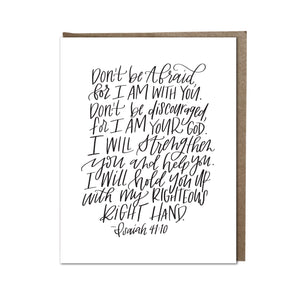 Don't be Afraid,
for I AM WITH YOU.
Don't be discouraged,
for I AM YOUR GOD.
I WILL strengthen
you and help you.
I Will hold you up
with my RIGHTEOUS
RIGHT HAND.
—Isaiah 41:10